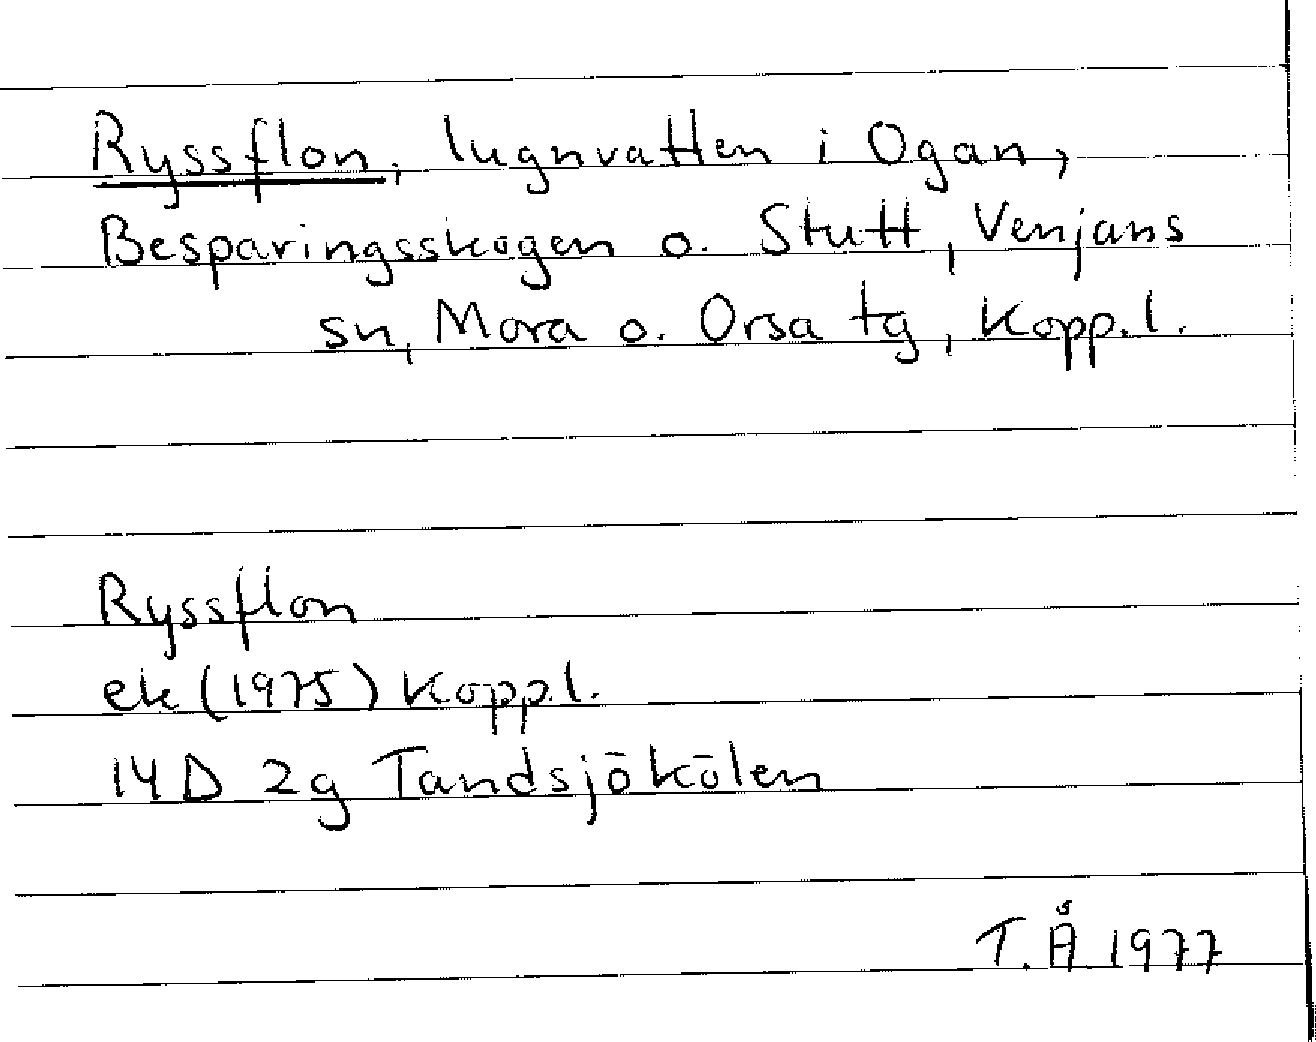 Ryssflon, lugnvatten i Ogan,
Besparingsskogen o. Stutt, Venjans
sn, Mora o. Orsa tg, Kopp.l.
Ryssflon
ek (1975) Kopp.l.
14 D 2g Tandsjökölen
T. Å 1977